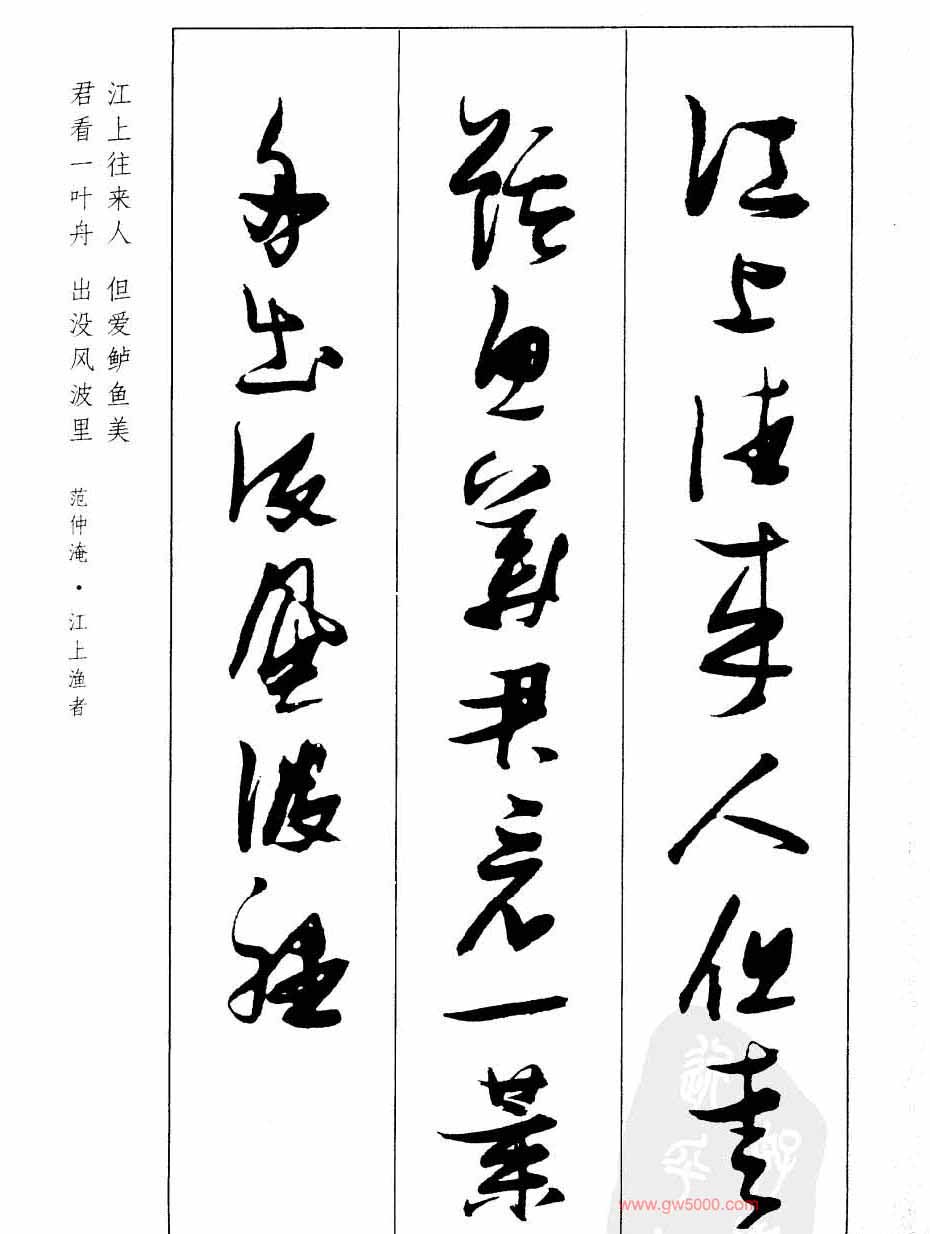 江上往来人但愛
鱸魚美君看一葉
舟出没風波裡
江上往来人 但爱鲈鱼美
君看一叶舟 出没风波里 范仲淹·江上渔者
www.gw5000.com